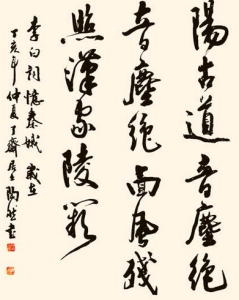 陽古道音塵絕
音塵絕西風殘
照漢家陵闕
李白詞憶秦娥歲在
丁亥年仲夏齋居士陶書